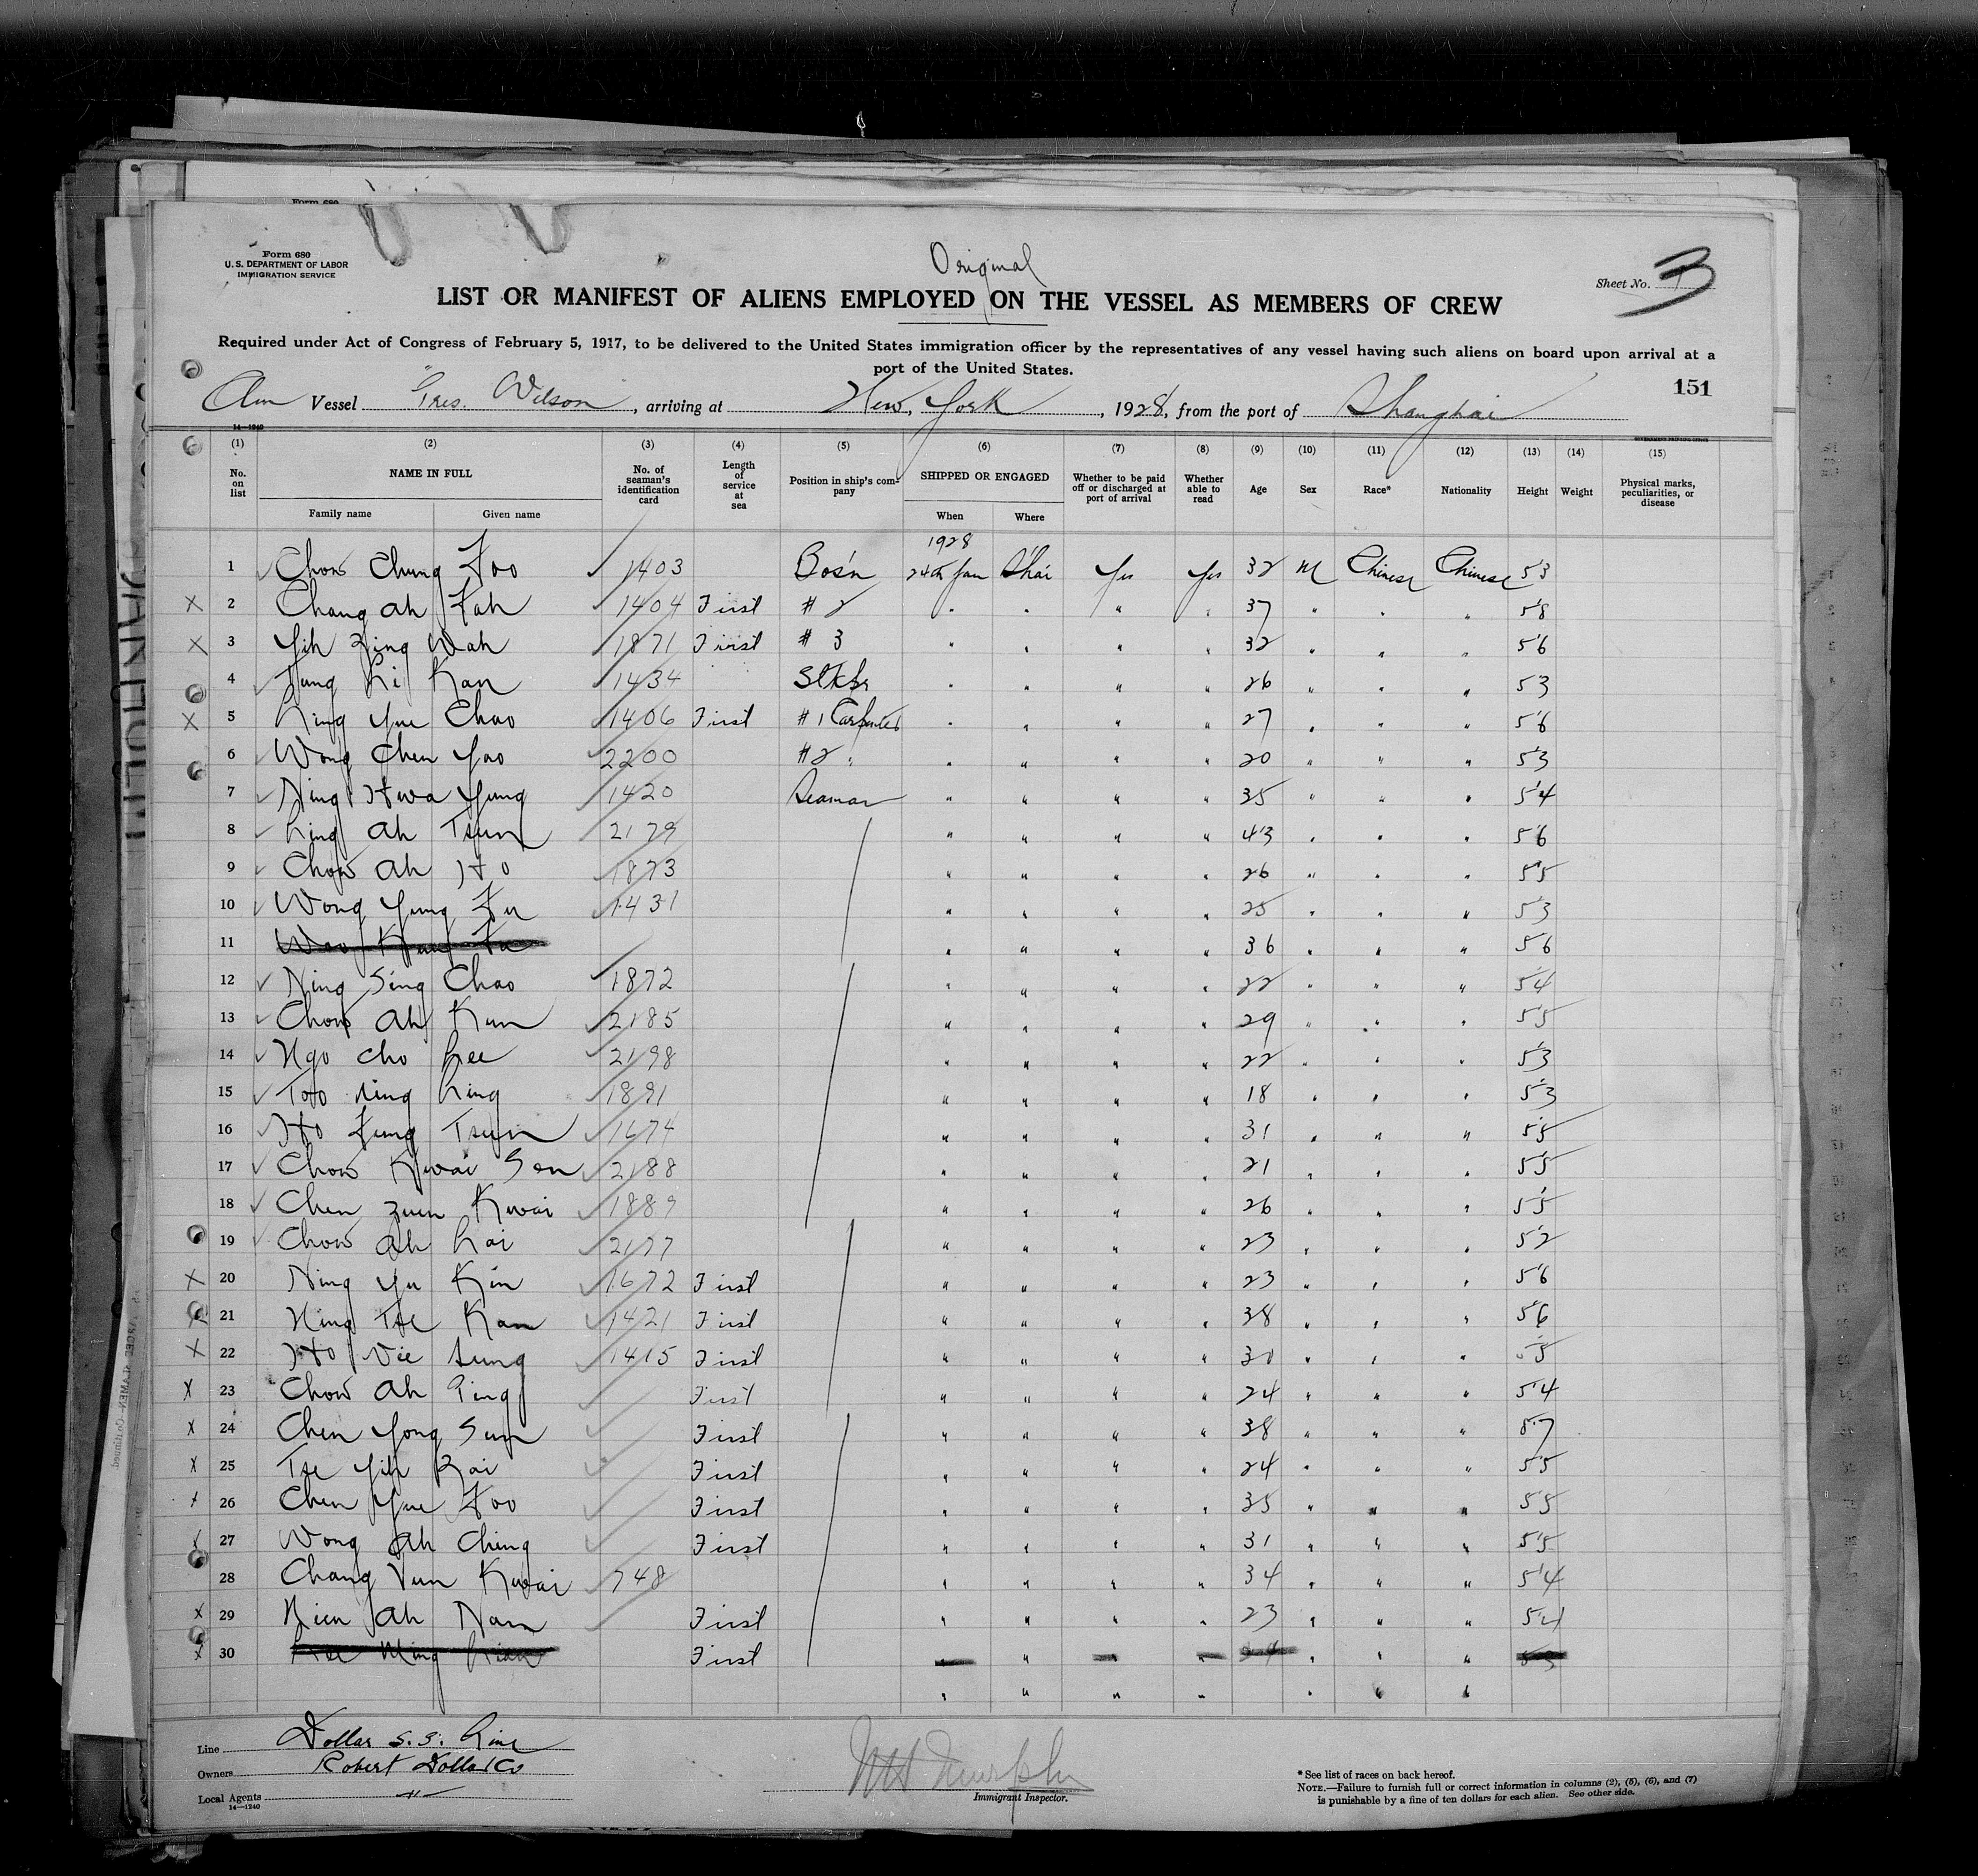 Form 680
U. S. DEPARTMENT OF LABOR
IMMIGRATION SERVICE
Original
Sheet No. 3
LIST OR MANIFEST OF ALIENS EMPLOYED ON THE VESSEL AS MEMBERS OF CREW
Required under Act of Congress of February 5, 1917, to be delivered to the United States immigration officer by the representatives of any vessel having such aliens on board upon arrival at a
port of the United States.
151
Am Vessel Pres. Wilson, arriving at New York, 1928, from the port of Shanghai
14—1240
(1) (2) (3) (4) (5) (6) (7) (8) (9) (10) (11) (12) (13) (14) (15)
No. on list NAME IN FULL No. of seaman's identification card Length of service at sea Position in ship's company SHIPPED OR ENGAGED Whether to be paid off or discharged at port of arrival Whether able to read Age Sex Race* Nationality Height Weight Physical marks, peculiarities, or disease
Family name Given name When Where
1928
1 Chow Chung Foo 1403 Bos'n 24th Jan S'hai Yes Yes 32 M Chinese Chinese 5'3
2 Chang Ah Fah 1404 First # 2 " " " " 37 " " " 5'8
3 Yih Zing Wah 1871 First # 3 " " " " 32 " " " 5'6
4 Tung Li Kan 1434 " " " " 26 " " " 5'3
5 Ling Yue Chao 1406 First # 1 Carpenter " " " " 27 " " " 5'6
6 Wong Chen Yao 2200 #2 " " " " " 20 " " " 5'3
7 Ning Hwa Yung 1420 Seaman " " " " 35 " " " 5'4
8 Ling Ah Tsun 2179 " " " " 43 " " " 5'6
9 Chow Ah Ho 1873 " " " " 26 " " " 5'5
10 Wong Yung Fu 1431 " " " " 25 " " " 5'3
11 " " " " 36 " " " 5'6
12 Ning Sing Chao 1872 " " " " 22 " " " 5'4
13 Chow Ah Kun 2185 " " " " 29 " " " 5'5
14 Ngo Cho Lee 2198 " " " " 22 " " " 5'3
15 Ling 1891 " " " " 18 " " " 5'3
16 Ho Fung Tsun 1674 " " " " 31 " " " 5'5
17 Chow Kwai Sen 2188 " " " " 21 " " " 5'5
18 Chen Zuen Kwai 1889 " " " " 26 " " " 5'5
19 Chow Ah Lai 2177 " " " " 23 " " " 5'2
20 Ning Yu Kin 1672 First " " " " 23 " " " 5'6
21 Ning Tse Kan 1421 First " " " " 38 " " " 5'6
22 Ho Vie Sung 1415 First " " " " 30 " " "
23 Chow Ah Ping First " " " " 24 " " " 5'4
24 Chen Yong Sun First " " " " 38 " " " 5'7
25 Tse Yih Zai First " " " " 24 " " " 5'5
26 Chen Yue Foo First " " " " 35 " " " 5'5
27 Wong Ah Ching First " " " " 31 " " " 5'5
28 Chang Vun Kwai 748 " " " " 34 " " " 5'4
29 Nien Ah Nan First " " " " 23 " " " 5'4
30 First " " " "
" " " " " " "
Line Dollar S. S. Line
Owners Robert Dollar Co
Local Agents "
14—1240
Murphy
Immigrant Inspector.
* See list of races on back hereof.
NOTE.—Failure to furnish full or correct information in columns (2), (5), (6), and (7)
is punishable by a fine of ten dollars for each alien. See other side.